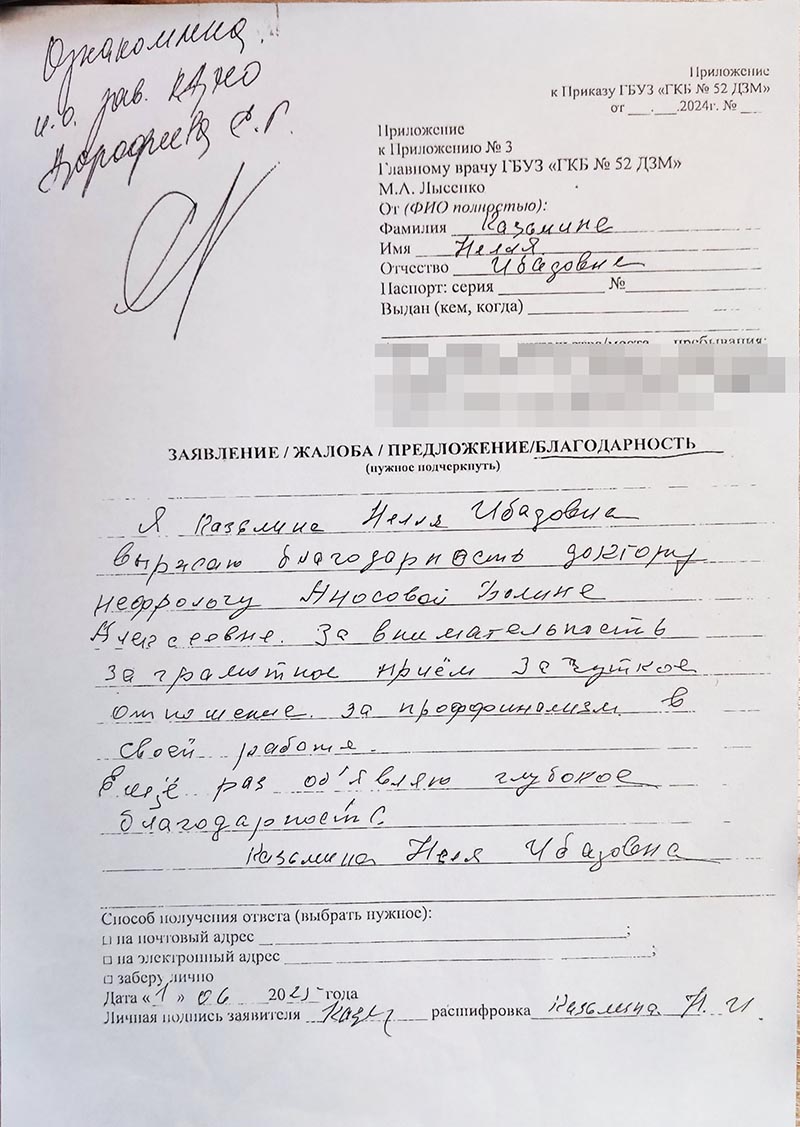 Ознакомлена
и.о. зав. КДНО
Дорофеева С.Г.
Приложение
к Приказу ГБУЗ «ГКБ № 52 ДЗМ»
от ___.___.2024г. № ___
Приложение
к Приложению № 3
Главному врачу ГБУЗ «ГКБ № 52 ДЗМ»
М.Л. Лысенко
От (ФИО полностью):
Фамилия Казьмине
Имя Нелля
Отчество Ибадовне
Паспорт: серия ____________ №____________
Выдан (кем, когда) ____________
пребывания:
ЗАЯВЛЕНИЕ / ЖАЛОБА / ПРЕДЛОЖЕНИЕ/БЛАГОДАРНОСТЬ
(нужное подчеркнуть)
Я Казьмина Нелля Ибадовна
выржаю благодарность доктору
нефрологу Аносовой Полине
Алексеевне. За внимательность
за грамотное приём за чуткое
отношение. за проффинализм в
своей работе.
Ещё раз об'являю глубокое
благодарность.
Казьмина Неля Ибадовна
Способ получения ответа (выбрать нужное):
□ на почтовый адрес ____________;
□ на электронный адрес ____________;
□ заберу лично
Дата « 1 » 06 2025 года
Личная подпись заявителя Казь расшифровка Казьмина Н. И.